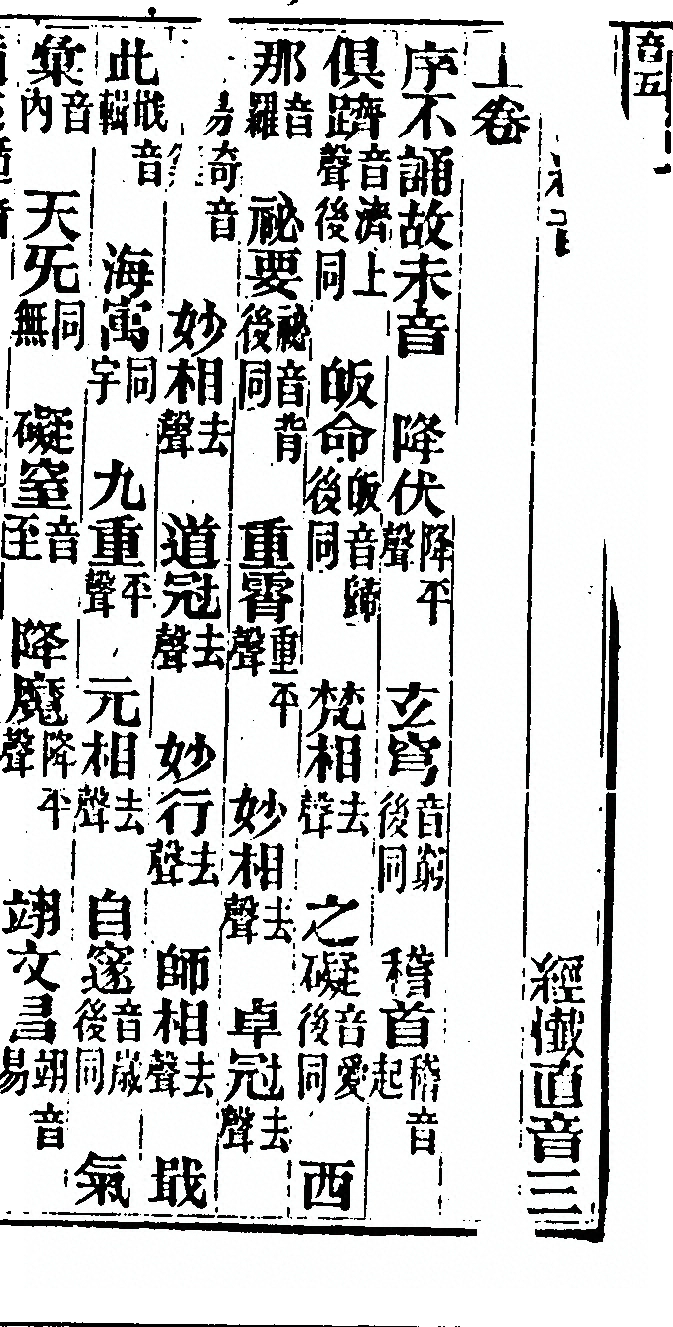 音五
經懺直音三
上卷
序不誦故未音 降伏降平聲 玄穹音窮後同 稽首稽音起
俱躋音濟上聲後同 皈命皈音歸後同 梵相去聲 之礙音愛後同 西
那音羅 祕要祕音背後同 重霄重平聲 妙相去聲 卓冠去聲
奇音易 妙相去聲 道冠去聲 妙行去聲 師相去聲 戢
此戢音輯 海寓同字 九重平聲 元相去聲 自邃音歲後同 氣
彙音內 天旡同無 礙窒音至 降魔降平聲 翊文昌翊音易